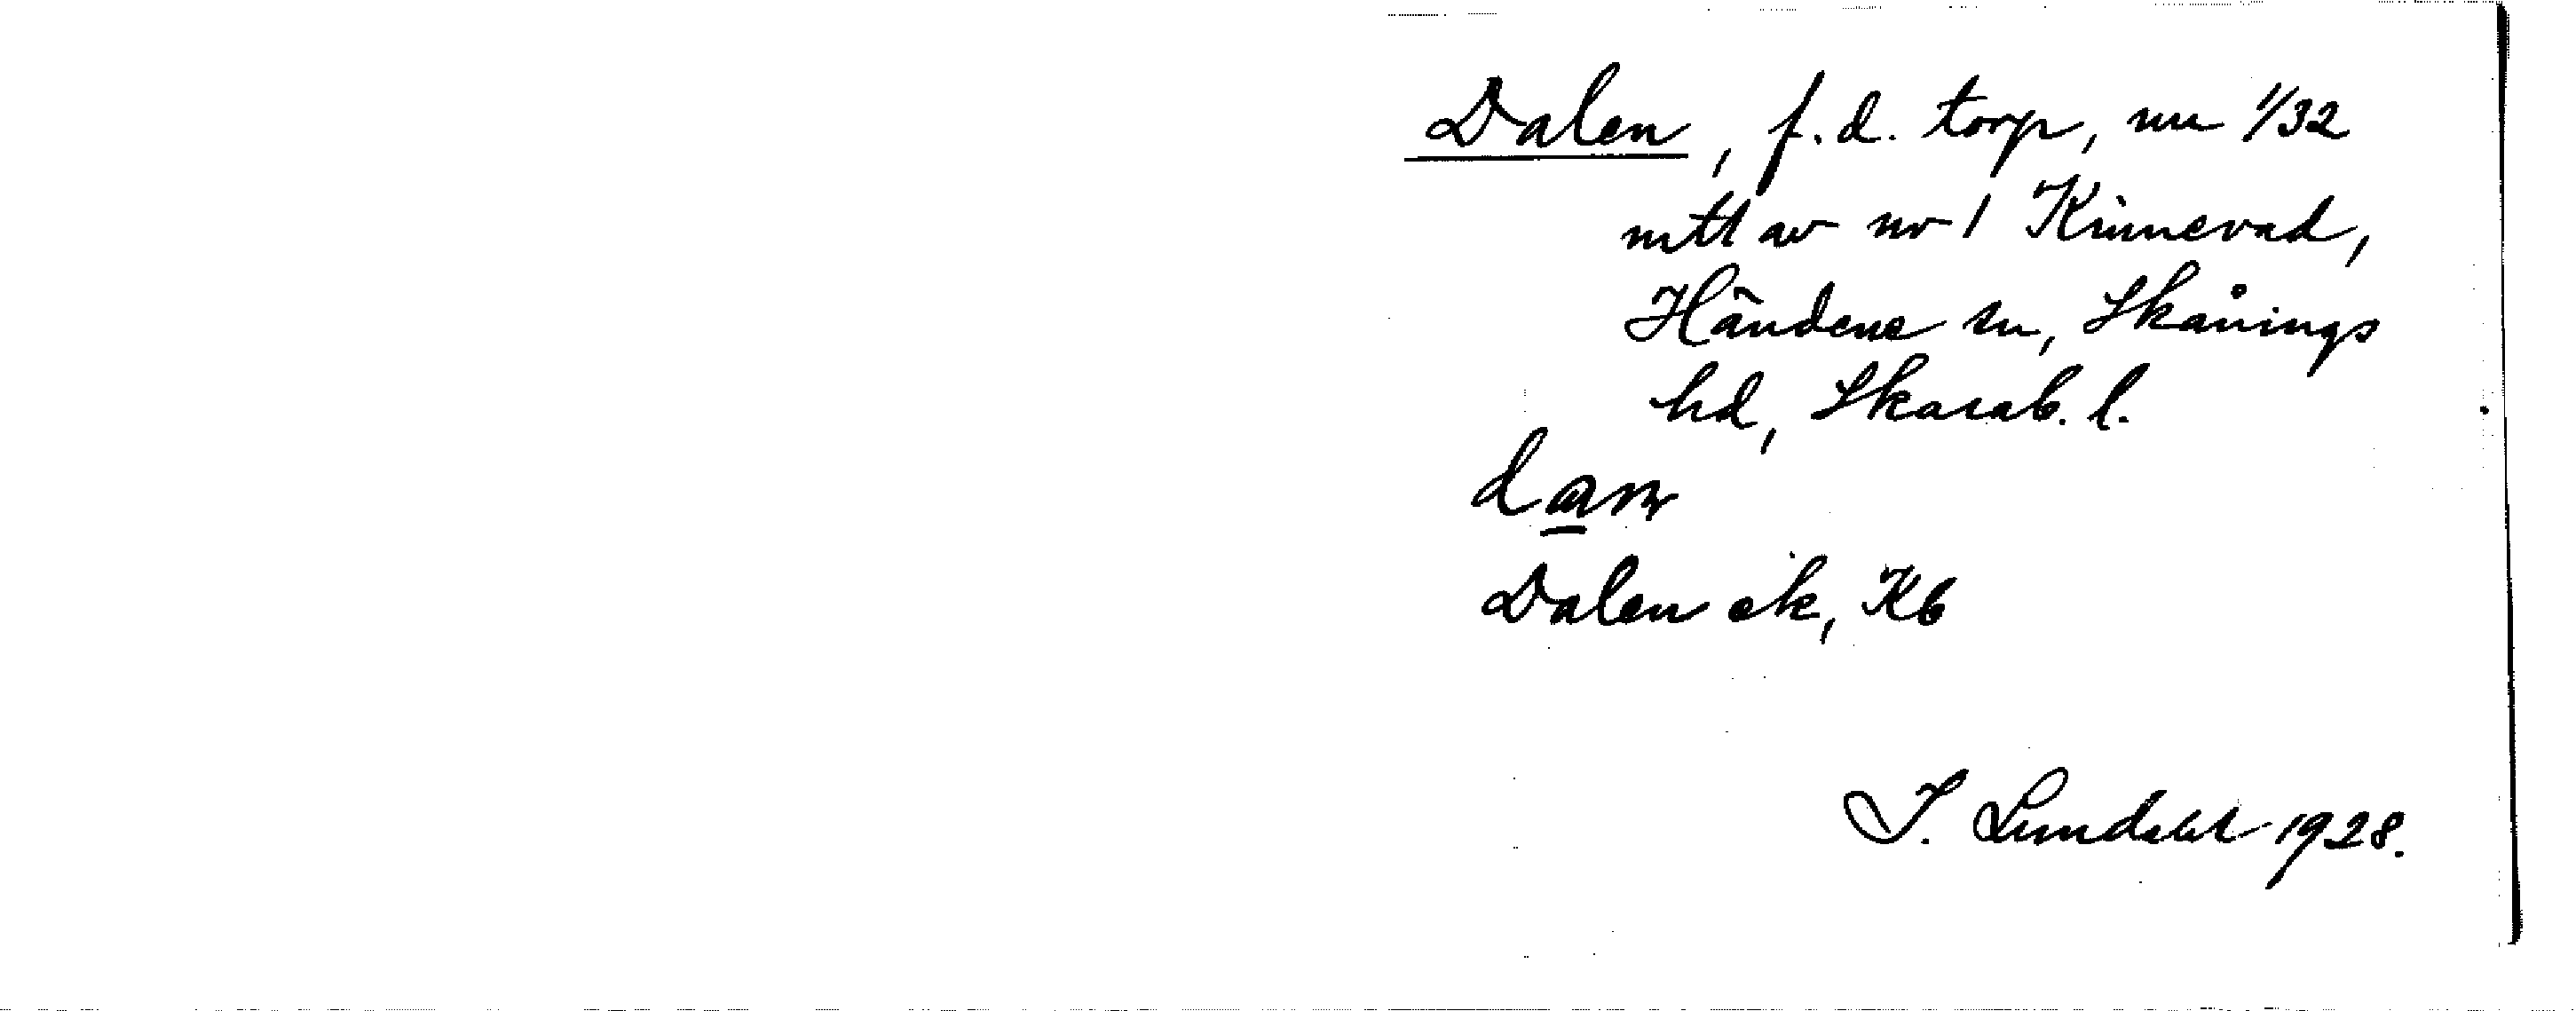 Dalen, f.d. torp, nu 1/32
mtl av nr 1 Kinnevad,
Händene sn, Skånings
hd, Skarab. l.
Dalen ek, Kb
I. Lundahl 1928.